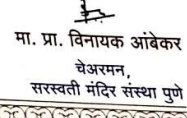 मा. प्रा. विनायक आंबेकर
चेअरमन,
सरस्वती मंदिर संस्था पुणे